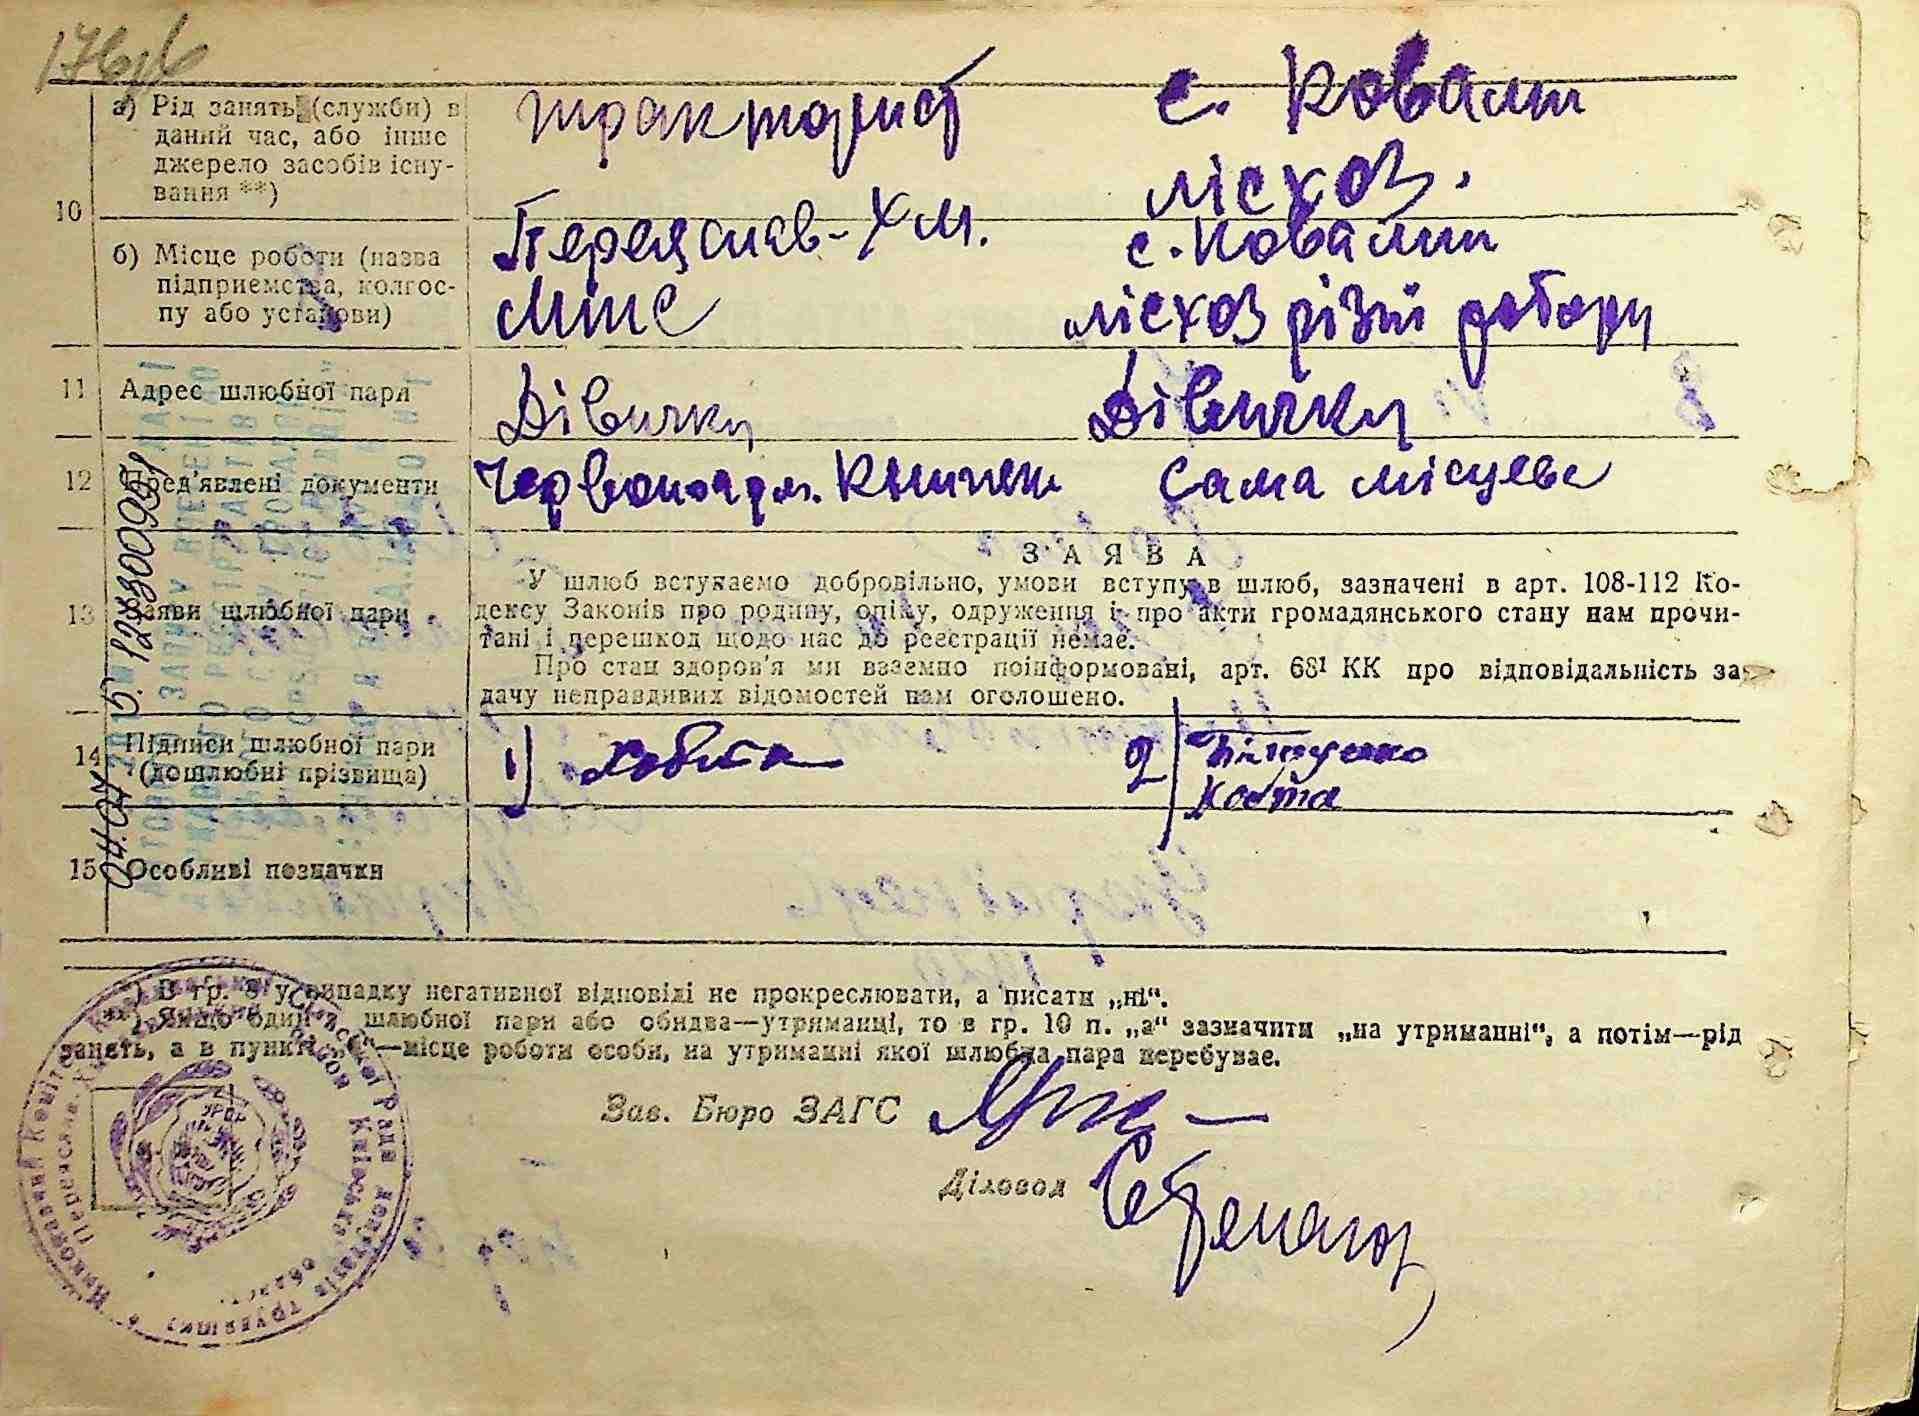 176
10
а) Рід занять (служби) в даний час, або інше джерело засобів існування **)
тракторист
с. Ковалин
лісхоз.
б) Місце роботи (назва підприємства, колгоспу або установи)
Переяслав-Хм.
МТС
с. Ковалин
лісхоз різні роботи
11 Адрес шлюбної пари
Дівички
Дівички
12 Пред'явлені документи
Червоноарм. книжки
Сама місцева
13 Заяви шлюбної пари
ЗАЯВА
У шлюб вступаємо добровільно, умови вступу в шлюб, зазначені в арт. 108-112 Ко-
дексу Законів про родину, опіку, одруження і про акти громадянського стану нам прочи-
тані і перешкод щодо нас до реєстрації немає.
Про стан здоров'я ми взаємно поінформовані, арт. 68¹ КК про відповідальність за
дачу неправдивих відомостей нам оголошено.
14 Підписи шлюбної пари
(дошлюбні прізвища)
1)
2)
Кобта
15 Особливі позначки
*) В гр. 8 у випадку негативної відповіді не прокреслювати, а писати „ні“.
**) Якщо один з шлюбної пари або обидва—утриманці, то в гр. 10 п. „а“ зазначити „на утриманні“, а потім—рід
занять, а в пункті „б“—місце роботи особи, на утриманні якої шлюбна пара перебуває.
Зав. Бюро ЗАГС
Діловод
УРСР